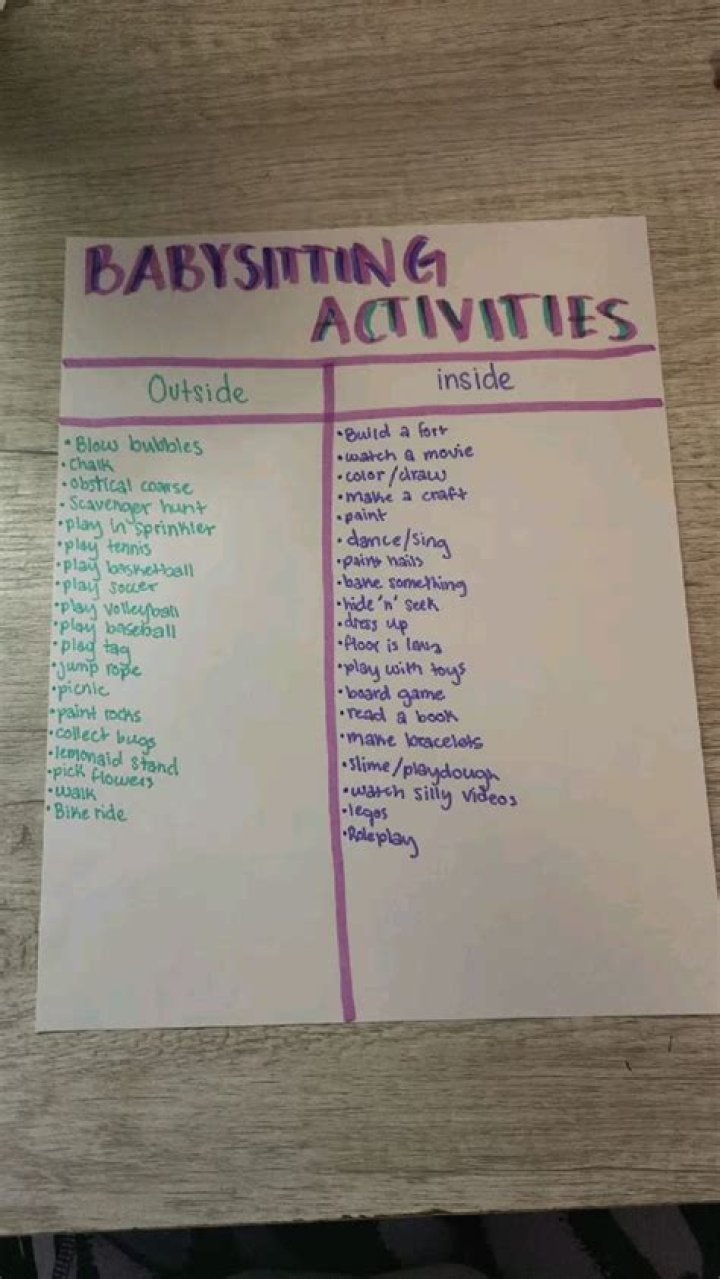 BABYSITTING
ACTIVITIES
Outside
• Blow bubbles
• Chalk
• obstical coarse
• Scavenger hunt
• play in sprinkler
• play tennis
• play basketball
• play soccer
• play volleyball
• play baseball
• play tag
• jump rope
• picnic
• paint rocks
• collect bugs
• lemonaid stand
• pick flowers
• walk
• Bike ride
inside
• Build a fort
• watch a movie
• color/draw
• make a craft
• paint
• dance/sing
• paint nails
• bake something
• hide 'n' seek
• dress up
• floor is lava
• play with toys
• board game
• read a book
• make bracelets
• slime/playdough
• watch silly videos
• legos
• Roleplay